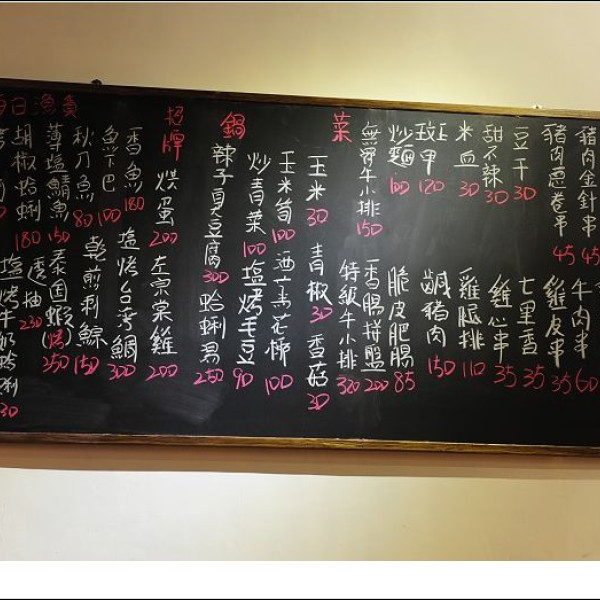 豬肉金針串 45
牛肉串 60
豬肉蔥卷串 45
雞皮串 35
豆干 30
七里香 35
甜不辣 30
雞心串 35
米血 30
雞腿排 110
斑甲 120
鹹豬肉 150
炒麵 100
脆皮肥腸 85
無骨牛小排 150
香腸拼盤 200
菜
特級牛小排 320
玉米 30
青椒 30
香菇 30
玉米筍 100
酒蒸花椰 100
炒青菜 100
塩烤毛豆 90
鍋
辣子臭豆腐 300
蛤蜊湯 250
招牌
烘蛋 200
左宗棠雞 200
香魚 180
塩烤台灣鯛 300
魚下巴 100
乾煎刺鯨 150
秋刀魚 80
薄塩鯖魚 150
泰國蝦(烤) 350
日漁貨
胡椒蛤蜊 180
透抽 230
塩烤牛奶蛤蜊